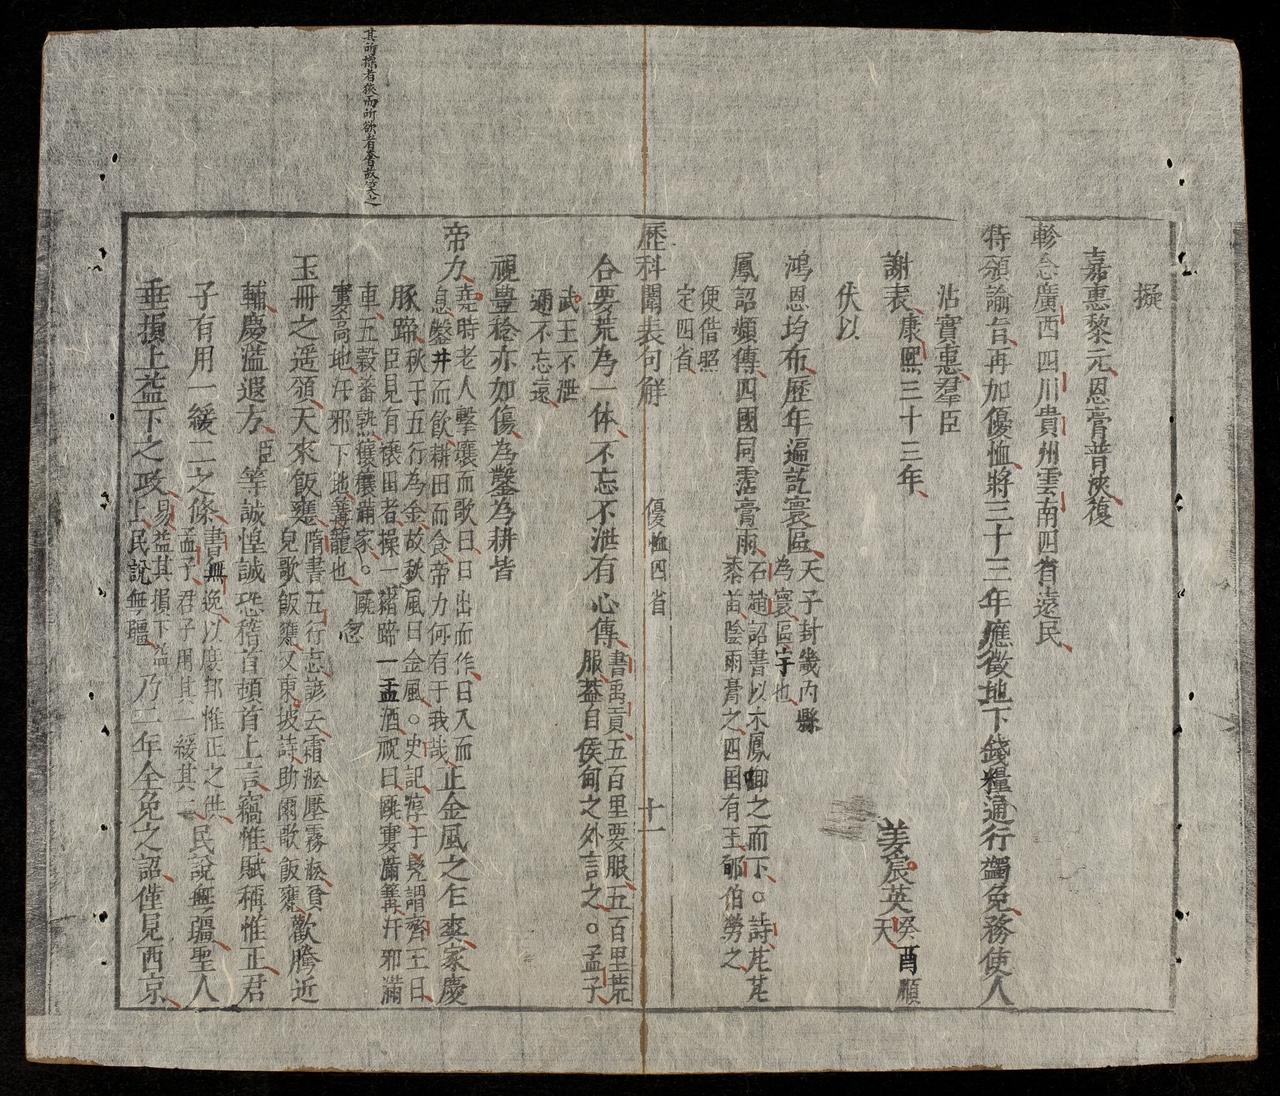 擬
嘉惠黎元恩膏普浹復
軫念廣西四川貴州雲南四省遠民
特頒諭旨再加優恤將三十三年應徵地下錢糧通行蠲免務使人
沾實惠羣臣
謝表康熙三十三年
姜宸英癸酉順天
伏以
鴻恩均布歷年遍訖寰區天子封畿內縣
為寰區宇也
鳳詔頻傳四國同霑膏雨石趙詔書以木鳳啣之而下。詩芃芃
黍苗陰雨膏之四国有王郇伯勞之
便偕照
定四省
歷科闈表句解
優恤四省
十一
合要荒為一体不忘不泄有心傳書禹貢五百里要服五百里荒
服葢自侯甸之外言之。孟子
武王不泄
邇不忘遠
視豊稔亦加傷為鑿為耕皆
帝力堯時老人擊壤而歌曰日出而作日入而
息鑿井而飲耕田而食帝力何有于我哉
正金風之乍爽家慶
豚蹄秋于五行為金故秋風曰金風。史記淳于髡謂齊王曰
臣見有禳田者操一豬蹄一盂酒祝曰甌寠滿篝汙邪滿
車五穀蕃熟穰穰滿家。甌
寠高地汙邪下地篝籠也
忽
玉冊之遥頒天來飯甕隋書五行志諺云霜凇壓霧凇貧
兒歌飯甕又東坡詩助爾歌飯甕
歡騰近
輔慶溢遐方臣等誠惶誠恐稽首頓首上言竊惟賦稱惟正君
子有用一緩二之條書無逸以庶邦惟正之供
孟子君子用其一緩其二
民說無疆聖人
垂損上益下之政易益其損下益
上民說無疆
乃二年全免之詔僅見西京
其所操者狹而所欲者奢故笑之